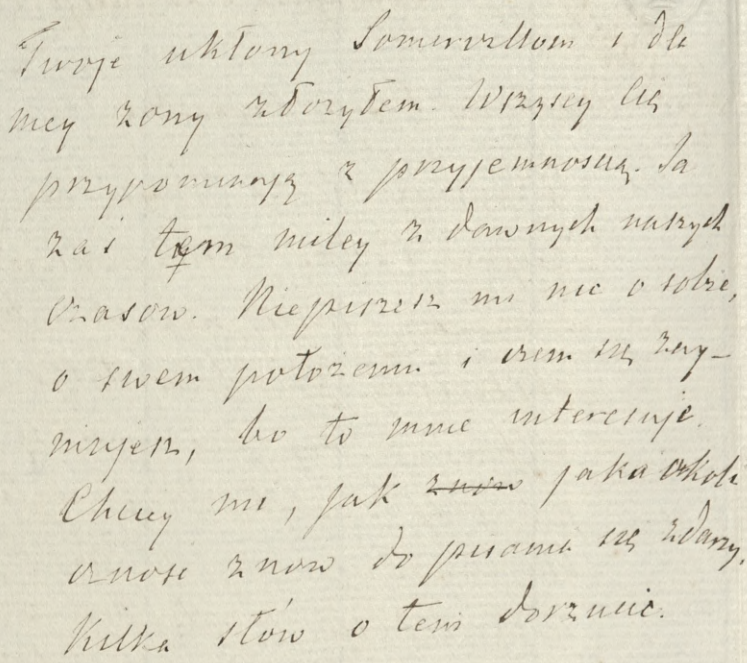 Twoje ukłony Somervillom i dla
mey żony złożyłem. Wszyscy Cię
przypominają z przyjemnością. Ja
zaś tem miley z dawnych naszych
czasów. Niepiszesz mi nic o sobie,
o swem położeniu i czem się zay-
mujesz, bo to mnie interesuje.
Chciey mi, jak znow jaka okoli
czność znow do pisania się zdarzy,
Kilka słów o tem dorzucić.